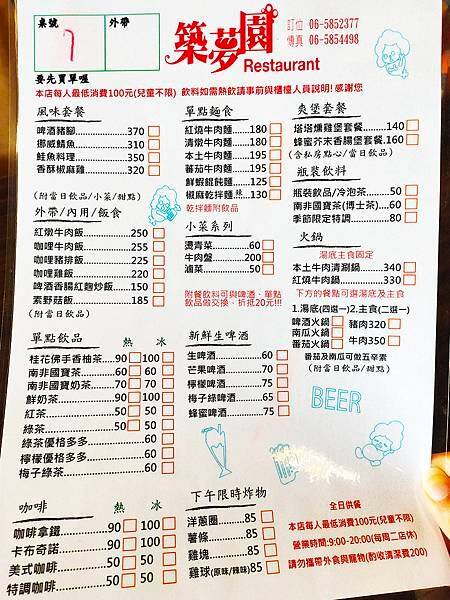 桌號
外帶
7
築夢園
Restaurant
訂位 06-5852377
傳真 06-5854498
要先買單喔
本店每人最低消費100元(兒童不限) 飲料如需熱飲請事前與櫃檯人員說明! 感謝您
風味套餐
啤酒豬腳 370
挪威鯖魚 310
鮭魚料理 350
香酥椒麻雞 320
(附當日飲品/小菜/甜點)
外帶/內用/飯食
紅燉牛肉飯 250
咖哩牛肉飯 220
咖哩豬排飯 225
咖哩雞飯 220
啤酒香腸紅麴炒飯 150
素野菇飯 185
(附當日飲品)
單點麵食
紅燒牛肉麵 180
清燉牛肉麵 180
本土牛肉麵 195
蕃茄牛肉麵 190
鮮蝦餛飩麵 125
椒麻乾拌麵 辣 130
乾拌麵附飲品
小菜系列
燙青菜 60
牛肉盤 200
滷菜 50
附餐飲料可與啤酒、單點
飲品做交換、折抵20元!!!
爽堡套餐
塔塔燻雞堡套餐 140
蜂蜜芥末香腸堡套餐 160
(含私房點心/當日飲品)
瓶裝飲料
瓶裝飲品/冷泡茶 50
南非國寶茶(博士茶) 60
季節限定特調 80
火鍋
湯底主食固定
本土牛肉清涮鍋 340
紅燒牛肉鍋 330
下方的餐點可選湯底及主食
1.湯底(四選一)2.主食(二選一)
啤酒火鍋 豬肉320
南瓜火鍋 牛肉350
番茄火鍋
番茄及南瓜可做五辛素
(附當日飲品/甜點)
單點飲品 熱 冰
桂花佛手香柚茶 90 100
南非國寶茶 60 60
南非國寶奶茶 70 70
鮮奶茶 90 100
紅茶 50 50
綠茶 50 50
綠茶優格多多 60
檸檬優格多多 60
梅子綠茶 60
新鮮生啤酒
生啤酒 60
芒果啤酒 70
檸檬啤酒 70
梅子綠啤酒 75
蜂蜜啤酒 75
BEER
咖啡 熱 冰
咖啡拿鐵 90 100
卡布奇諾 90 100
美式咖啡 50 50
特調咖啡 50 50
下午限時炸物
洋蔥圈 85
薯條 85
雞塊 85
雞球(原味/辣味) 85
全日供餐
本店每人最低消費100元(兒童不限)
營業時間:9:00-20:00(每周二店休)
請勿攜帶外食與寵物(酌收清潔費200)